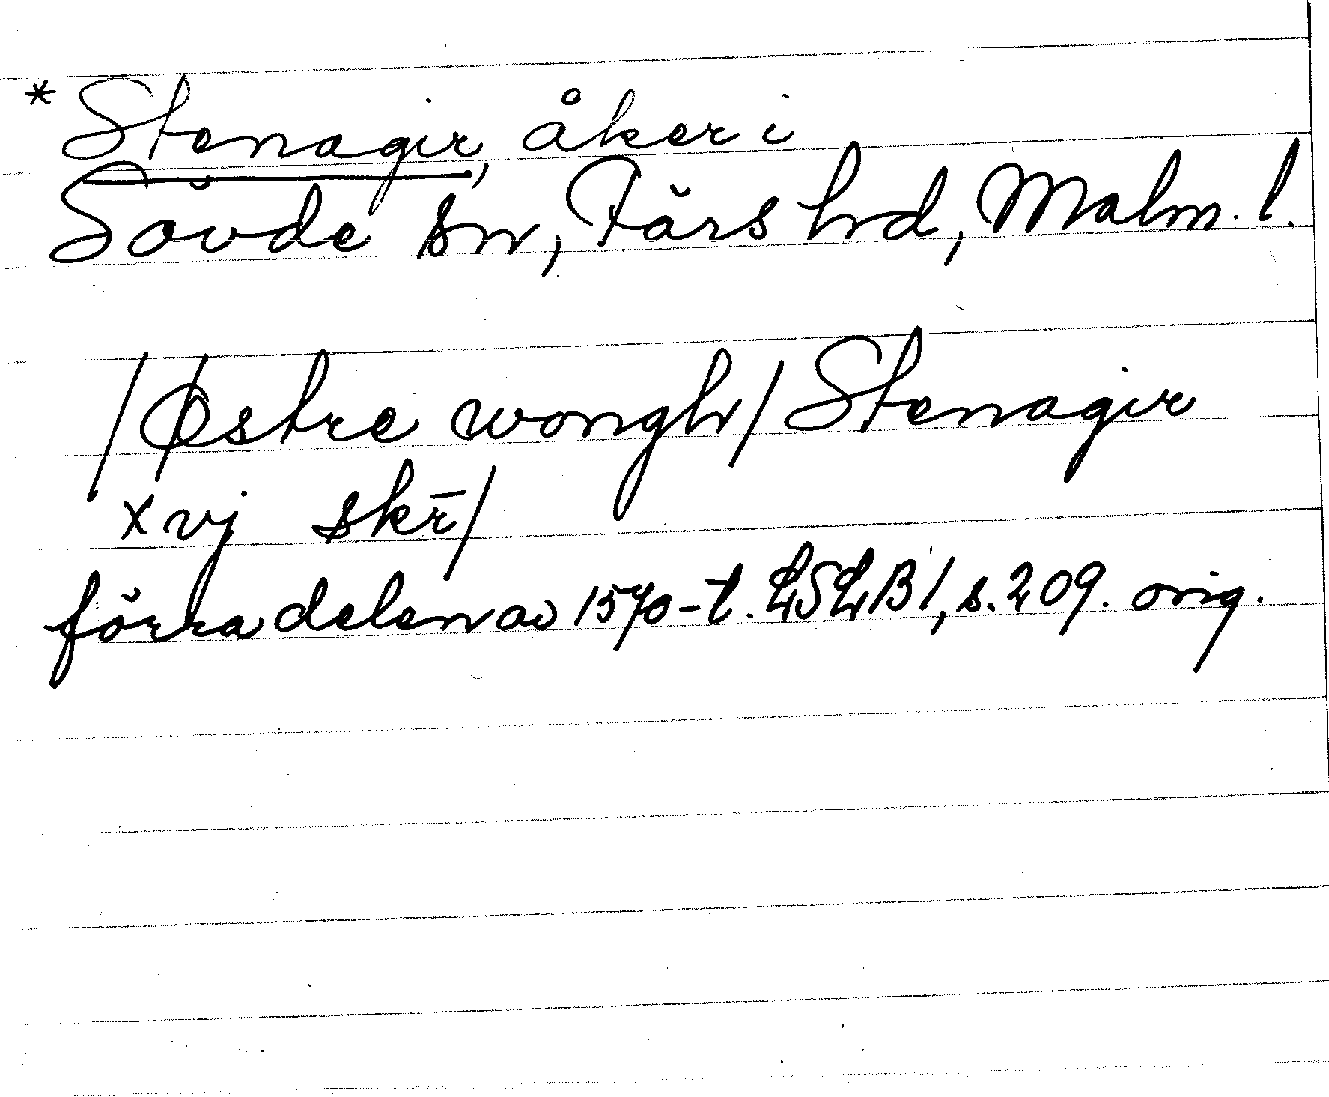 * Stenagir, åker i
Sövde sn, Färs hd, Malm. l.
/Østre wongh/ Stenagir
xvj skr̄/
förra delen av 1570-t. LSLB1, s. 209. orig.